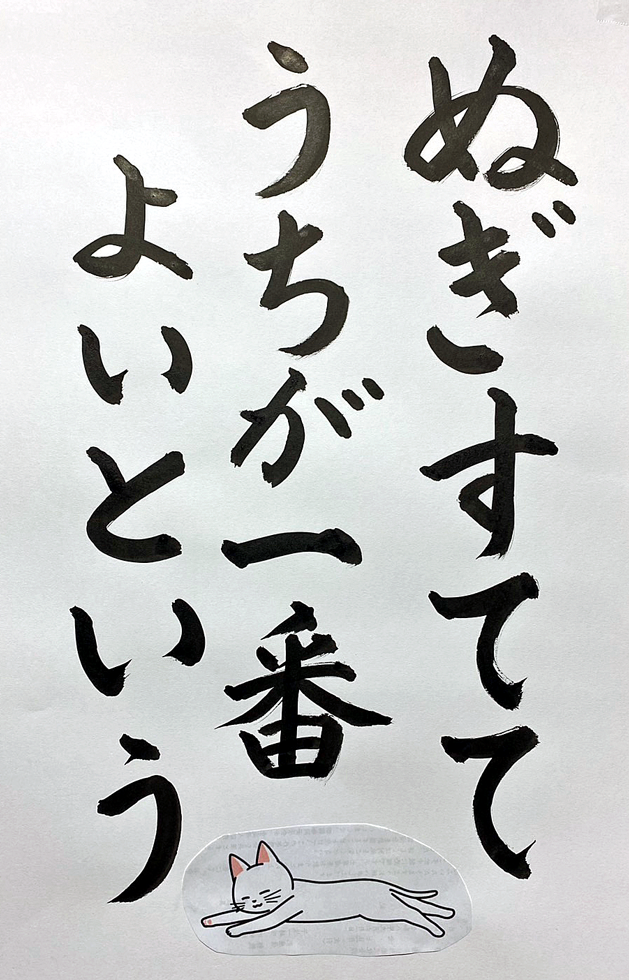 ぬぎすてて
うちが一番
よいという